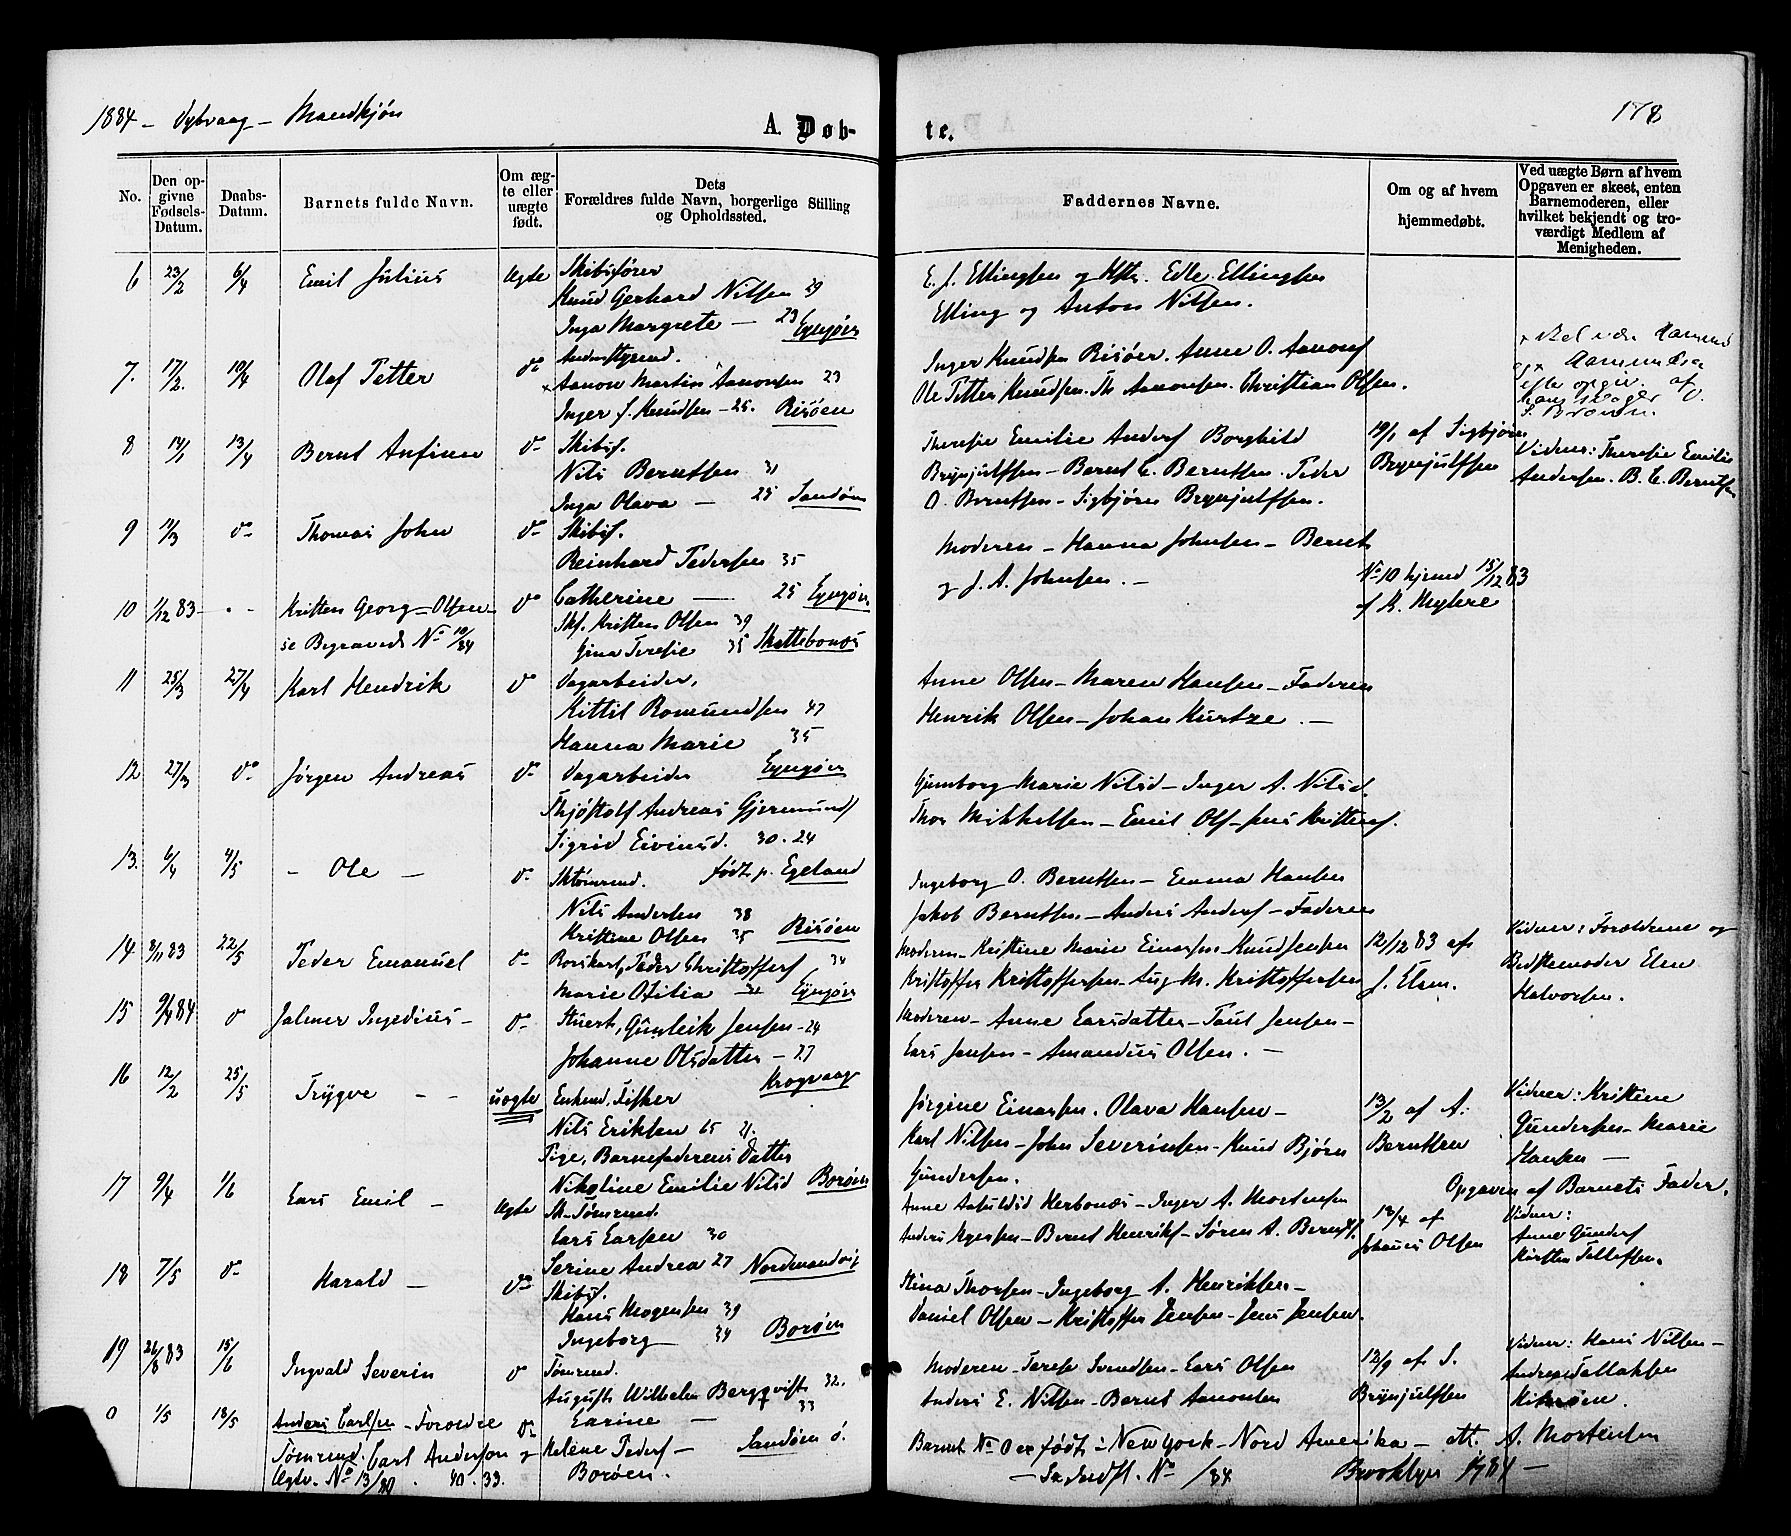 1884 - Dybvaag - Mandkjøn
178
A. Døb-
te.
No.
Den op-
givne
Fødsels-
Datum.
Daabs-
Datum.
Barnets fulde Navn.
Om æg-
te eller
uægte
født.
Dets
Forældres fulde Navn, borgerlige Stilling
og Opholdssted.
Faddernes Navne.
Om og af hvem
hjemmedøbt.
Ved uægte Børn af hvem
Opgaven er skeet, enten
Barnemoderen, eller
hvilket bekjendt og tro-
værdigt Medlem af
Menigheden.
6 23/2 6/4 Emil Julius Ægte Skibsfører
Knud Gerhard Nilsen 29
Inga Margrete — 23 Eynjøer
E. J. Ellingsen og Hstr. Edle Ellingsen
Elling og Anton Nilsen.
7. 17/2. 10/4 Olaf Petter do
Aanon Martin Aanonsen 23
Inger J. Knudsen - 25. Risøen
Inger Knudsen Risøer. Anne O. Aanons
Ole Petter Knudsen. Th Aanonsen. Christian Olsen.
8 14/1 13/4 Bernt Anfinn do Skibsf.
Nils Berntsen 31
Inga Olava — 25 Sandøen
Theresie Emilie Anders Borghild
Brynjulfsen - Bernt C. Berntsen. Peder
O. Berntsen - Sigbjørn Brynjulfsen.
19/1 af Sigbjørn
Brynjulfsen
Vidner: Theresie Emilie
Andersen. B. C. Berntsen
9 11/3 do Thomas John do Skibsf.
Reinhard Pedersen 35
Catherine — 25 Eynjøer
Moderen - Hanna Johnsen - Bernt
og J. A. Johnsen. -
10 1/12 83 - - Kristen Georg - Olsen - do
se Begravede No 10/84
Skf. Kristen Olsen 39
Gina Teresie 35 Skottebonæs
No 10 hjemd 15/12 83
af K. Myhre
11 25/3 27/4 Karl Hendrik do Dagarbeider,
Kittil Romundsen 47
Hanna Marie 35
Eynjøer
Anne Olsen - Maren Hansen - Faderen
Henrik Olsen - Johan Kurtze. -
12 27/3 do Jørgen Andreas do Dagarbeider
Thjøstolf Andreas Gjermunds
Sigrid Eivinsd. 30. 24
født p. Egeland
Gunborg Marie Nilsd - Inger A. Nilsd.
Thor Mikkelsen - Emil Ols - Jens Kristens.
13. 6/4 4/5 - Ole - do Sktømmd.
Nils Andersen 38
Kristine Olsen 35 Risøen
Ingeborg O. Berntsen - Emma Hansen
Jakob Berntsen - Anders Anders - Faderen
14 8/11 83 22/5 Peder Emanuel do Peder Christoffers 34
Marie Otilia 32 Eynjøer
Moderen - Kristine Marie Einarsen - Knud Jensen
Kristoffer Kristoffersen - Aug M. Kristoffersen
12/12 83 af
J. Elsen.
Vidner: Forældrene og
Bedstemoder Elen
Halvorsen.
15 9/4 84 do Jalmer Ingedius - do Stuert, Gunleik Jensen - 24
Johanne Olsdatter - 27
Krogvaag
Moderen - Anne Larsdatter - Poul Jensen -
Lars Jensen - Amandus Olsen. -
16 12/2 25/5 Trygve - - uægte Enkemd. Fisker
Nils Eriksen 65 21.
Pige, Barnefaderens Datter
Nikoline Emilie Nilsd Borøen
Jørgine Einarsen. Olava Hansen -
Karl Nilsen - John Severinsen - Knud Bjørn
Gundersen.
13/2 af A.
Berntsen
Vidner: Kristine
Gundersen - Marie
Hansen -
Opgaven af Barnets Fader.
17 9/4 1/6 Lars Emil - Ægte Sk-Tømmd.
Lars Larsen 30
Serine Andrea 27 Nordenandvig
Anne Aasuldsd Herbonæs - Inger A. Mortensen
Anders Aagesen - Bernt Henriks - Søren A. Bernts.
13/4 af
Johanes Olsen
Vidner:
Anne Gunders
Kirsten Tellefsen.
18 7/5 do Harald - do Skibsf.
Hans Mogensen 39
Ingeborg — 34 Borøen
Stina Thorsen - Ingeborg A. Henriksen -
Daniel Olsen - Kristoffer Jensen - Jens Jensen.
19 26/8 83 15/6 Ingvald Severin do Tømmd.
August Wilhelm Bergqvist 32.
Larine — 33
Sandøen ø.
Moderen - Terese Svendsen - Lars Olsen
Anders E. Nilsen - Bernt Aanonsen
12/9 af S.
Brynjulfsen
Vidner: Hans Nilsen -
Andreas Tallaksen
0 1/5 18/5 Anders Carlsen - Forældre do
Tømmd. Carl Andersen og Helene Peders -
Ægtev. No 13/80. 40. 33. Borøen.
Barnet No 0 er født i New York - Nord Amerika - att. A. Mortensen
Brooklyn